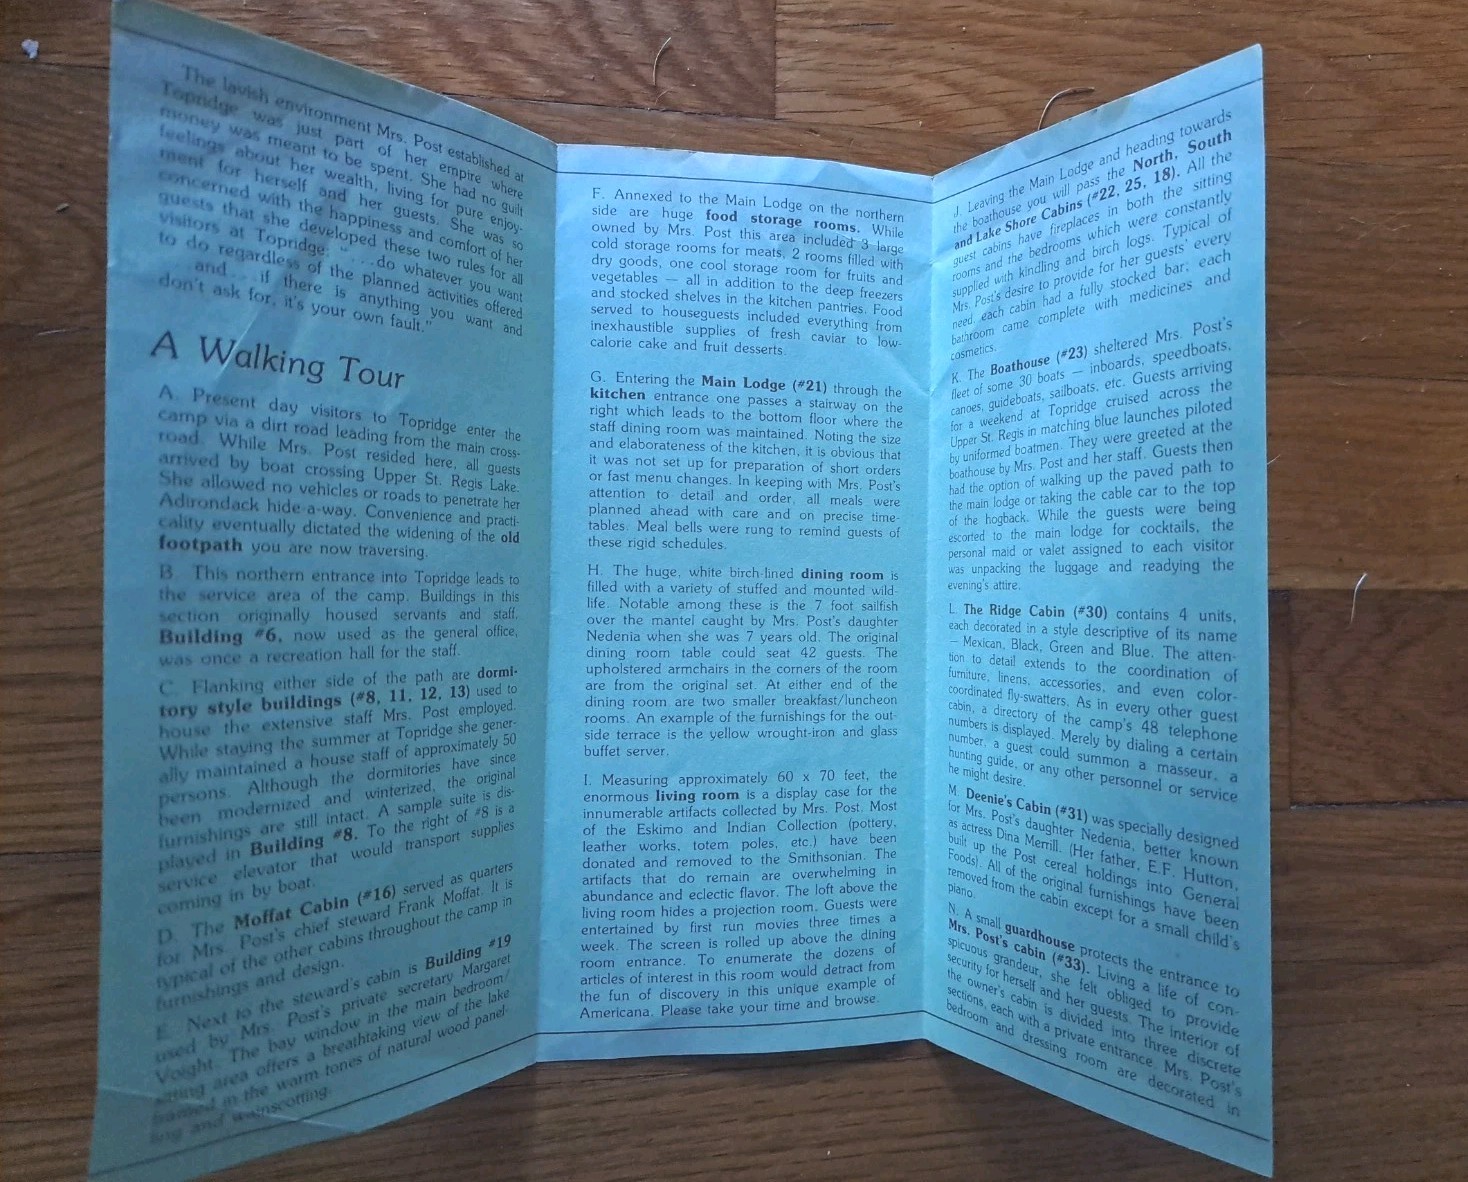 The lavish environment Mrs. Post established at
Topridge was just part of her empire where
money was meant to be spent. She had no guilt
feelings about her wealth, living for pure enjoy-
ment for herself and her guests. She was so
concerned with the happiness and comfort of her
guests that she developed these two rules for all
visitors at Topridge: ". . .do whatever you want
to do regardless of the planned activities offered
. . .and. . . if there is anything you want and
don't ask for, it's your own fault."
A Walking Tour
A. Present day visitors to Topridge enter the
camp via a dirt road leading from the main cross-
road. While Mrs. Post resided here, all guests
arrived by boat crossing Upper St. Regis Lake.
She allowed no vehicles or roads to penetrate her
Adirondack hide-a-way. Convenience and practi-
cality eventually dictated the widening of the old
footpath you are now traversing.
B. This northern entrance into Topridge leads to
the service area of the camp. Buildings in this
section originally housed servants and staff.
Building #6, now used as the general office,
was once a recreation hall for the staff.
C. Flanking either side of the path are dormi-
tory style buildings (#8, 11, 12, 13) used to
house the extensive staff Mrs. Post employed.
While staying the summer at Topridge she gener-
ally maintained a house staff of approximately 50
persons. Although the dormitories have since
been modernized and winterized, the original
furnishings are still intact. A sample suite is dis-
played in Building #8. To the right of #8 is a
service elevator that would transport supplies
coming in by boat.
D. The Moffat Cabin (#16) served as quarters
for Mrs. Post's chief steward Frank Moffat. It is
typical of the other cabins throughout the camp in
furnishings and design.
E. Next to the steward's cabin is Building #19
used by Mrs. Post's private secretary Margaret
Voight. The bay window in the main bedroom/
sitting area offers a breathtaking view of the lake
framed in the warm tones of natural wood panel-
ling and wainscotting.
F. Annexed to the Main Lodge on the northern
side are huge food storage rooms. While
owned by Mrs. Post this area included 3 large
cold storage rooms for meats, 2 rooms filled with
dry goods, one cool storage room for fruits and
vegetables — all in addition to the deep freezers
and stocked shelves in the kitchen pantries. Food
served to houseguests included everything from
inexhaustible supplies of fresh caviar to low-
calorie cake and fruit desserts.
G. Entering the Main Lodge (#21) through the
kitchen entrance one passes a stairway on the
right which leads to the bottom floor where the
staff dining room was maintained. Noting the size
and elaborateness of the kitchen, it is obvious that
it was not set up for preparation of short orders
or fast menu changes. In keeping with Mrs. Post's
attention to detail and order, all meals were
planned ahead with care and on precise time-
tables. Meal bells were rung to remind guests of
these rigid schedules.
H. The huge, white birch-lined dining room is
filled with a variety of stuffed and mounted wild-
life. Notable among these is the 7 foot sailfish
over the mantel caught by Mrs. Post's daughter
Nedenia when she was 7 years old. The original
dining room table could seat 42 guests. The
upholstered armchairs in the corners of the room
are from the original set. At either end of the
dining room are two smaller breakfast/luncheon
rooms. An example of the furnishings for the out-
side terrace is the yellow wrought-iron and glass
buffet server.
I. Measuring approximately 60 x 70 feet, the
enormous living room is a display case for the
innumerable artifacts collected by Mrs. Post. Most
of the Eskimo and Indian Collection (pottery,
leather works, totem poles, etc.) have been
donated and removed to the Smithsonian. The
artifacts that do remain are overwhelming in
abundance and eclectic flavor. The loft above the
living room hides a projection room. Guests were
entertained by first run movies three times a
week. The screen is rolled up above the dining
room entrance. To enumerate the dozens of
articles of interest in this room would detract from
the fun of discovery in this unique example of
Americana. Please take your time and browse.
J. Leaving the Main Lodge and heading towards
the boathouse you will pass the North, South
and Lake Shore Cabins (#22, 25, 18). All the
guest cabins have fireplaces in both the sitting
rooms and the bedrooms which were constantly
supplied with kindling and birch logs. Typical of
Mrs. Post's desire to provide for her guests' every
need, each cabin had a fully stocked bar; each
bathroom came complete with medicines and
cosmetics.
K. The Boathouse (#23) sheltered Mrs. Post's
fleet of some 30 boats — inboards, speedboats,
canoes, guideboats, sailboats, etc. Guests arriving
for a weekend at Topridge cruised across the
Upper St. Regis in matching blue launches piloted
by uniformed boatmen. They were greeted at the
boathouse by Mrs. Post and her staff. Guests then
had the option of walking up the paved path to
the main lodge or taking the cable car to the top
of the hogback. While the guests were being
escorted to the main lodge for cocktails, the
personal maid or valet assigned to each visitor
was unpacking the luggage and readying the
evening's attire.
L. The Ridge Cabin (#30) contains 4 units,
each decorated in a style descriptive of its name
— Mexican, Black, Green and Blue. The atten-
tion to detail extends to the coordination of
furniture, linens, accessories, and even color-
coordinated fly-swatters. As in every other guest
cabin, a directory of the camp's 48 telephone
numbers is displayed. Merely by dialing a certain
number, a guest could summon a masseur, a
hunting guide, or any other personnel or service
he might desire.
M. Deenie's Cabin (#31) was specially designed
for Mrs. Post's daughter Nedenia, better known
as actress Dina Merrill. (Her father, E.F. Hutton,
built up the Post cereal holdings into General
Foods). All of the original furnishings have been
removed from the cabin except for a small child's
piano.
N. A small guardhouse protects the entrance to
Mrs. Post's cabin (#33). Living a life of con-
spicuous grandeur, she felt obliged to provide
security for herself and her guests. The interior of
the owner's cabin is divided into three discrete
sections, each with a private entrance. Mrs. Post's
bedroom and dressing room are decorated in